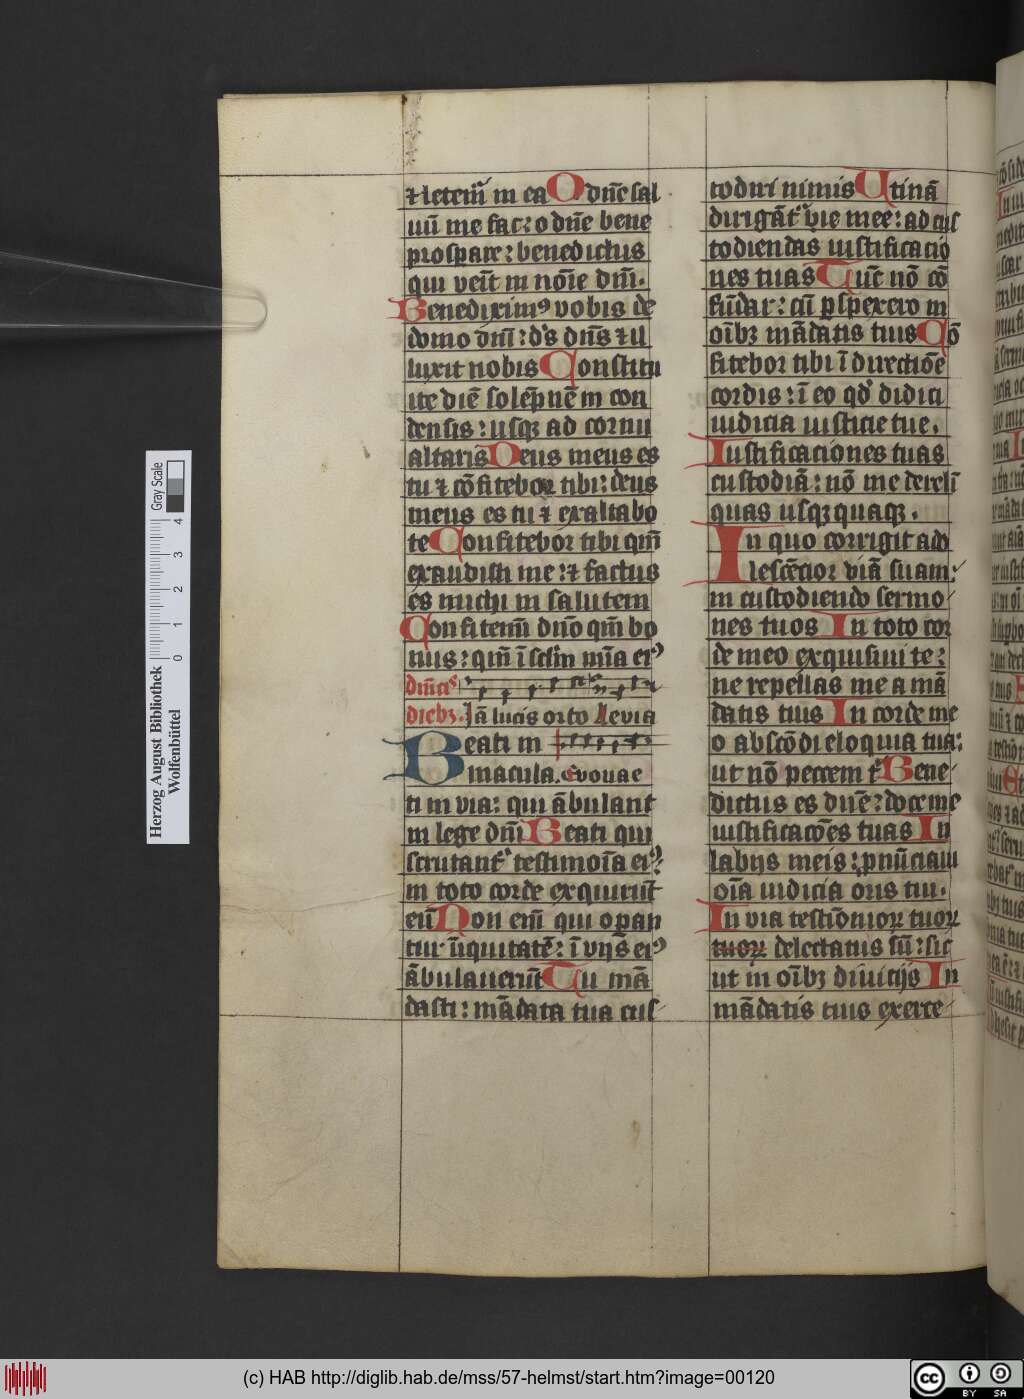 ⁊ letem᷑ in ea O dn̄e sal
uū me fac: o dn̄e bene
prosparē: benedictus
qui veīt in nōīe dn̄i.
Benedixim⁹ vobis de
domo dn̄i: d̄s dn̄s ⁊ il
luxit nobis Constitu
ite diē solēp̄nē in con
densis: usqꝫ ad cornu
altaris Deus meus es
tu ⁊ cōfitebor tibi: deus
meus es tu ⁊ exaltabo
te Confitebor tibi qm̄
exaudisti me: ⁊ factus
es michi in salutem
Confitemī dn̄o qm̄ bo
nus: qm̄ ī sc̄lm mīa ei⁹
dn̄icis
diebꝫ. Jā lucis orto Aevia
Beati in
macula. Evovae
ti in via: qui ābulant
in lege dn̄i Beati qui
scrutant᷑ testimoīa ei⁹:
in toto corde exquirūt
eū Non enī qui opan
tur īiquitatē: ī vijs ei⁹
ābulauerūt Tu mā
dasti: mādata tua cus
todiri nimis Utinā
dirigāt᷑ vie mee: ad cus
todiendas iustificacio
nes tuas Tūc nō cō
fūdar: cū ꝑspexero in
oībꝫ mādatis tuis Cō
fitebor tibi ī directiōe
cordis: ī eo qd̓ didici
iudicia iusticie tue.
Iustificaciones tuas
custodiā: nō me derelī
quas usqꝫquaqꝫ.
In quo corrigit ado
lescēcior viā suam:
in custodiendo sermo
nes tuos In toto cor
de meo exquisiui te:
ne repellas me a mā
datis tuis In corde me
o abscōdi eloquia tua:
ut nō peccem t᷑ Bene
dictus es dn̄e: doce me
iustificacōes tuas In
labijs meis: pnūciaui
oīa iudicia oris tui.
In via testiōnioꝝ tuoꝝ
tuoꝝ delectatus sū: sic
ut in oībꝫ diuicijs In
mādatis tuis exerce
Herzog August Bibliothek
Wolfenbüttel
0 1 2 3 4
Gray Scale
(c) HAB http://diglib.hab.de/mss/57-helmst/start.htm?image=00120
cc BY SA